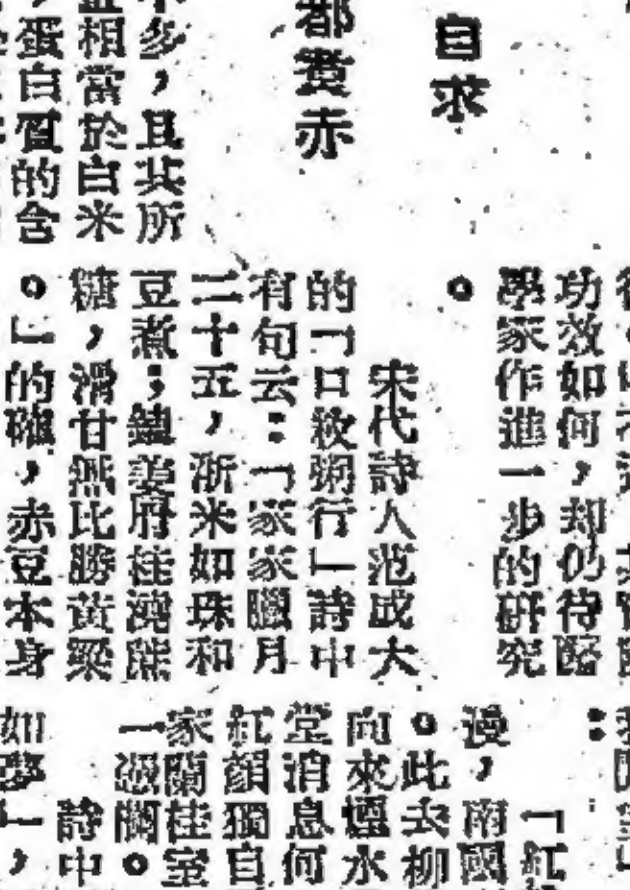 自求
都赍赤
不多，且其所
相當於白米
蛋白質的含
功效如何，却仍待醫
學家作進一步的研究
。
宋代詩人范成大
的「口数粥行」詩中
有句云：「家家臘月
二十五，淅米如珠和
豆煮；
糖，滑甘無比勝黄粱
。」的確，赤豆本身
「紅
漫，南國
。此去柳
向來煙水
堂消息何
紅顔獨自
家蘭桂室
一凝
詩中
如夢」，